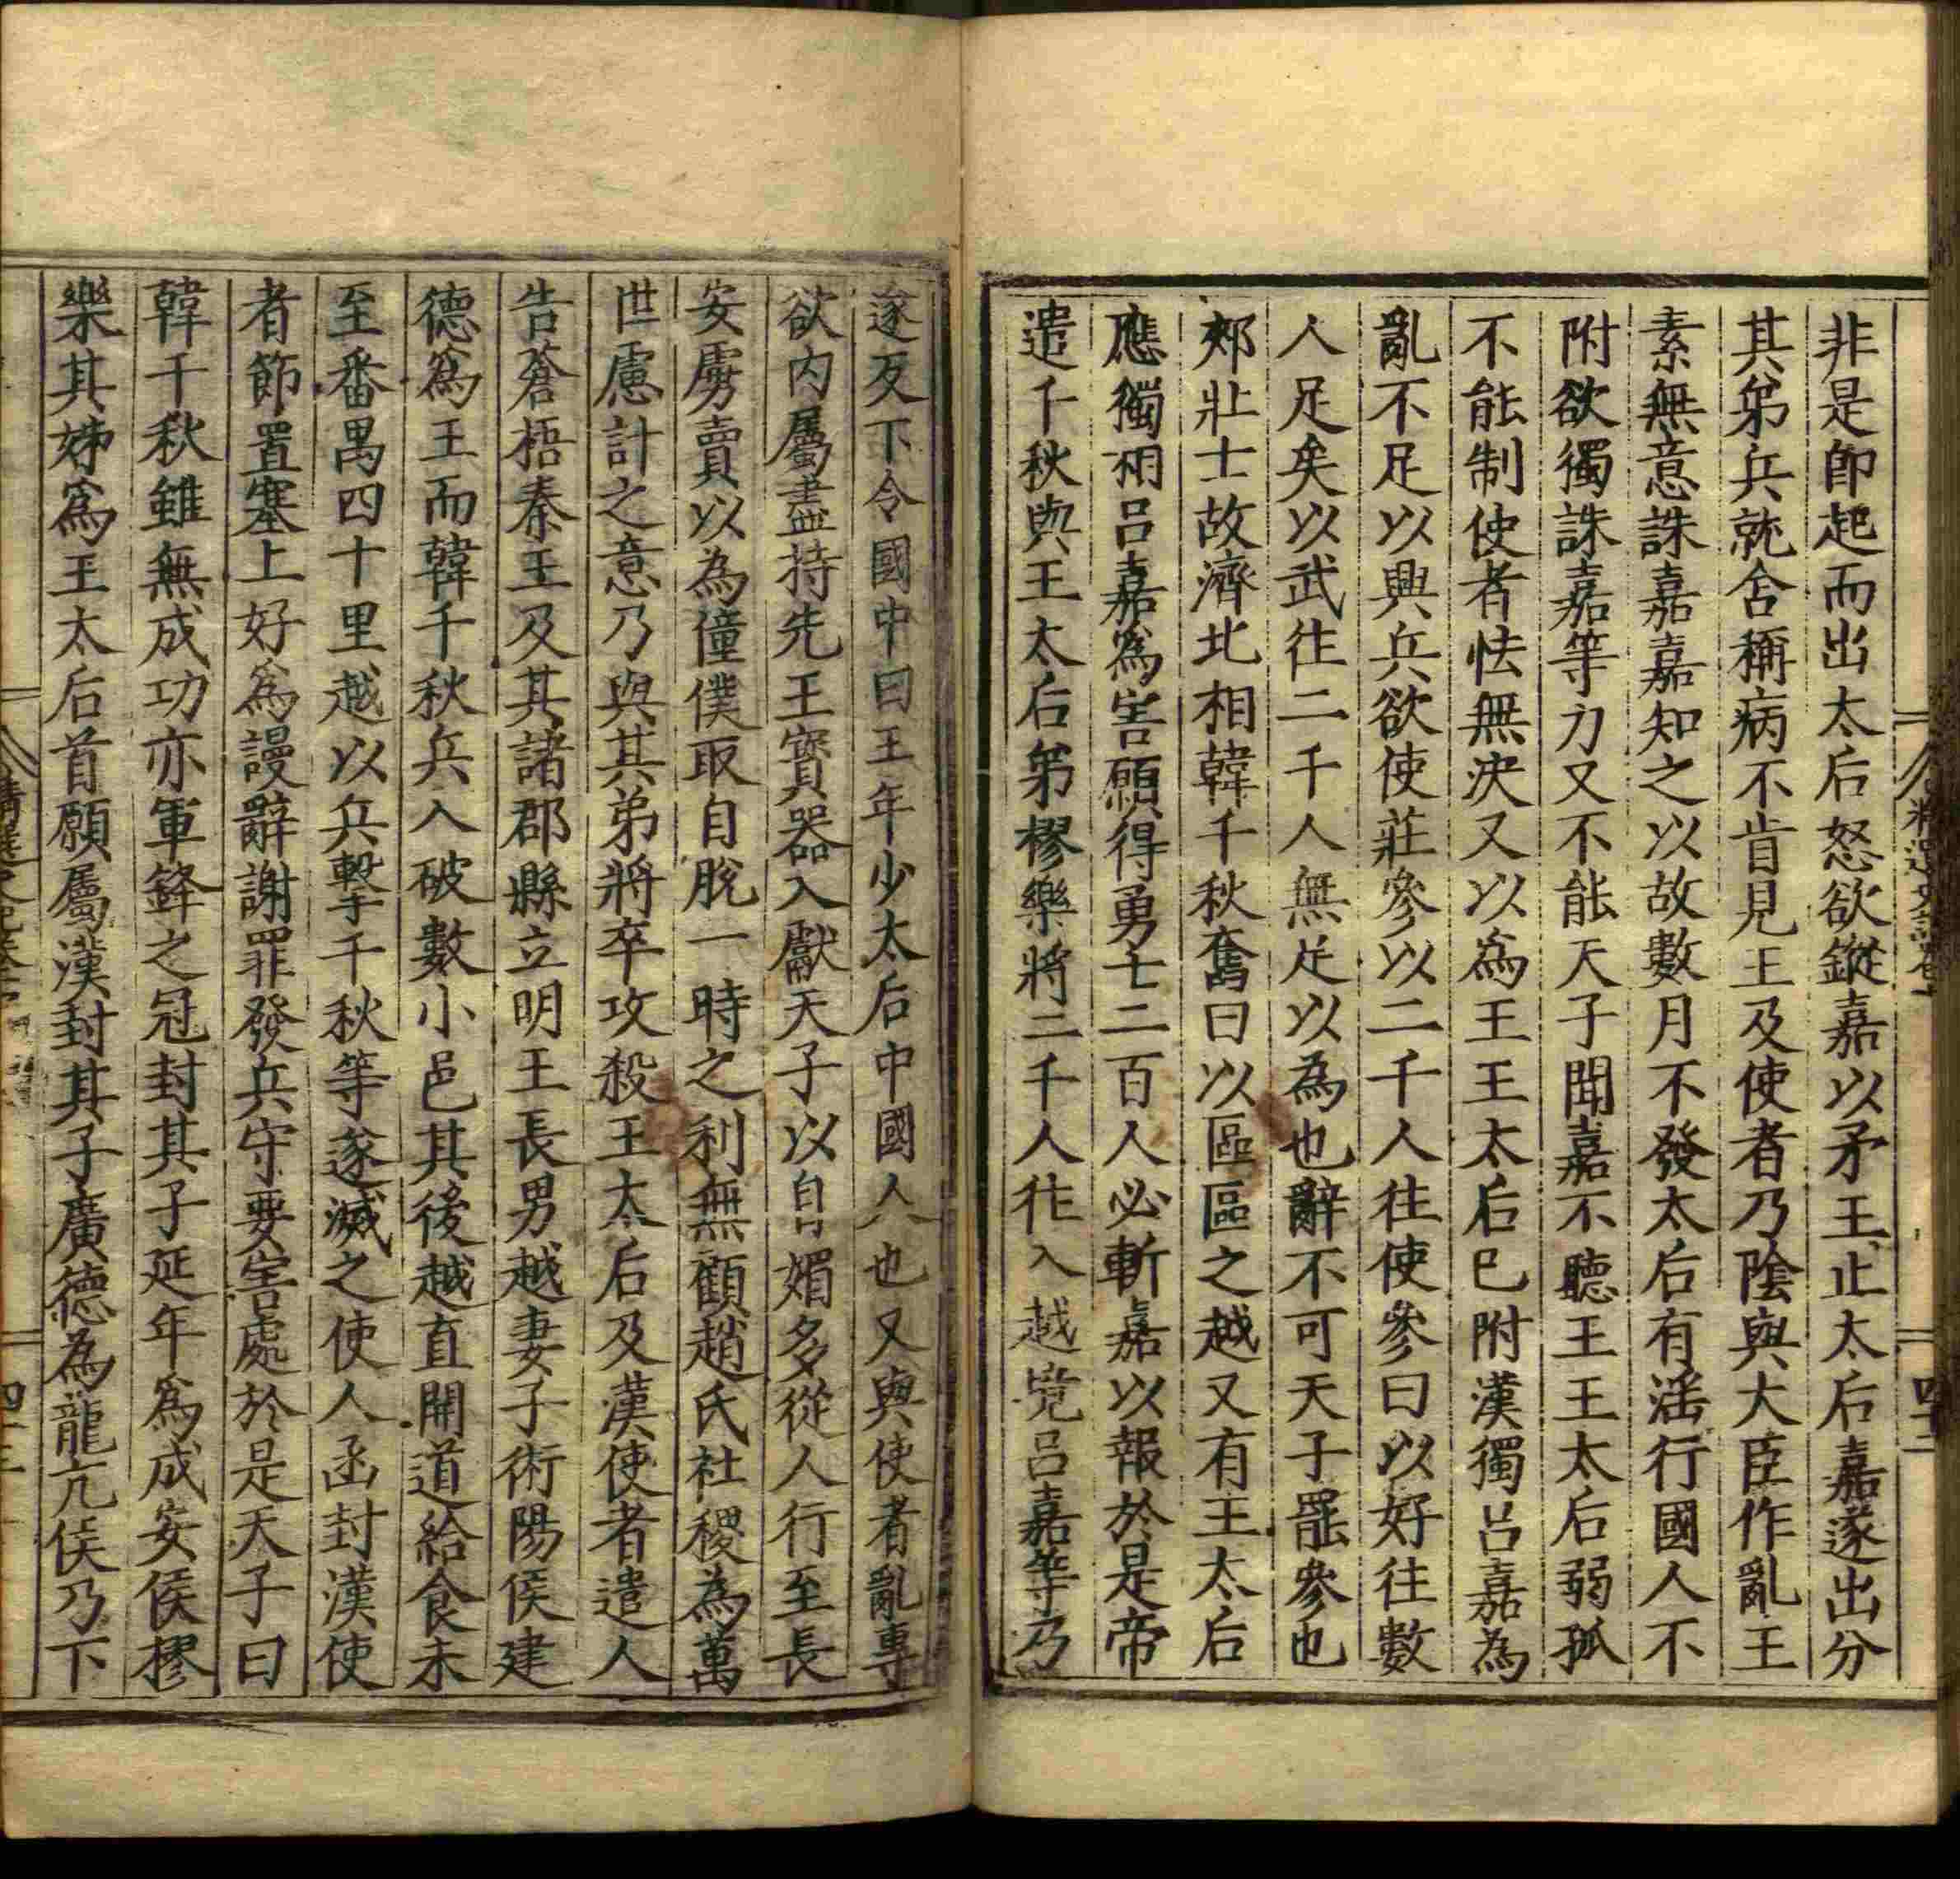 非是即起而出太后怒欲鏦嘉以矛王止太后嘉遂出分
其弟兵就舍稱病不肯見王及使者乃隂與大臣作亂王
素無意誅嘉嘉知之以故數月不發太后有淫行國人不
附欲獨誅嘉等力又不能天子聞嘉不聽王王太后弱孤
不能制使者怯無決又以為王王太后已附漢獨吕嘉為
亂不足以興兵欲使莊參以二千人往使參曰以好往數
人足矣以武往二千人無足以為也辭不可天子罷參也
郟壯士故濟北相韓千秋奮曰以區區之越又有王太后
應獨相吕嘉爲害願得勇士二百人必斬嘉以報於是帝
遣千秋與王太后弟樛樂將二千人徃入越境吕嘉等乃
遂反下令國中曰王年少太后中國人也又與使者亂專
欲内屬盡持先王寳器入獻天子以自媚多從人行至長
安虜賣以為僮僕取自脫一時之利無顧趙氏社稷為萬
世慮計之意乃與其弟將卒攻殺王太后及漢使者遣人
告蒼梧秦王及其諸郡縣立明王長男越妻子術陽侯建
德爲王而韓千秋兵入破數小邑其後越直開道給食未
至番禺四十里越以兵擊千秋等遂滅之使人函封漢使
者節置塞上好爲謾辭謝罪發兵守要害處於是天子曰
韓千秋雖無成功亦軍鋒之冠封其子延年爲成安侯樛
樂其姊爲王太后首願屬漢封其子廣德為龍亢侯乃下